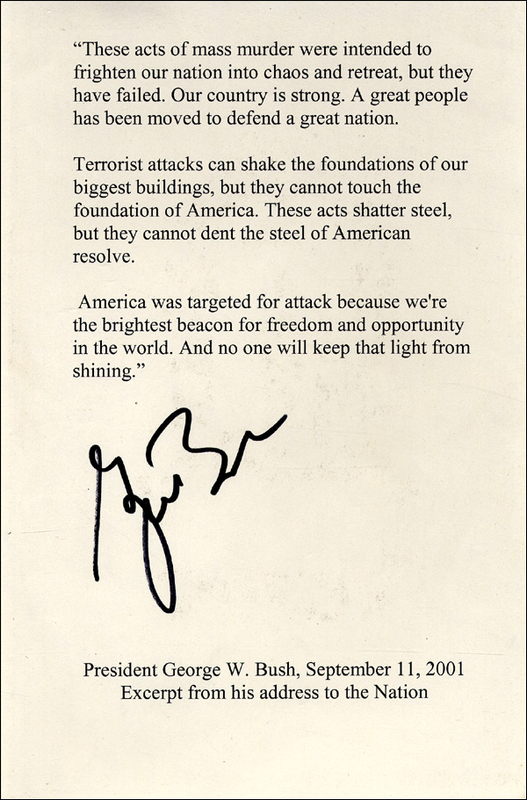 “These acts of mass murder were intended to
frighten our nation into chaos and retreat, but they
have failed. Our country is strong. A great people
has been moved to defend a great nation.
Terrorist attacks can shake the foundations of our
biggest buildings, but they cannot touch the
foundation of America. These acts shatter steel,
but they cannot dent the steel of American
resolve.
America was targeted for attack because we're
the brightest beacon for freedom and opportunity
in the world. And no one will keep that light from
shining.”
President George W. Bush, September 11, 2001
Excerpt from his address to the Nation